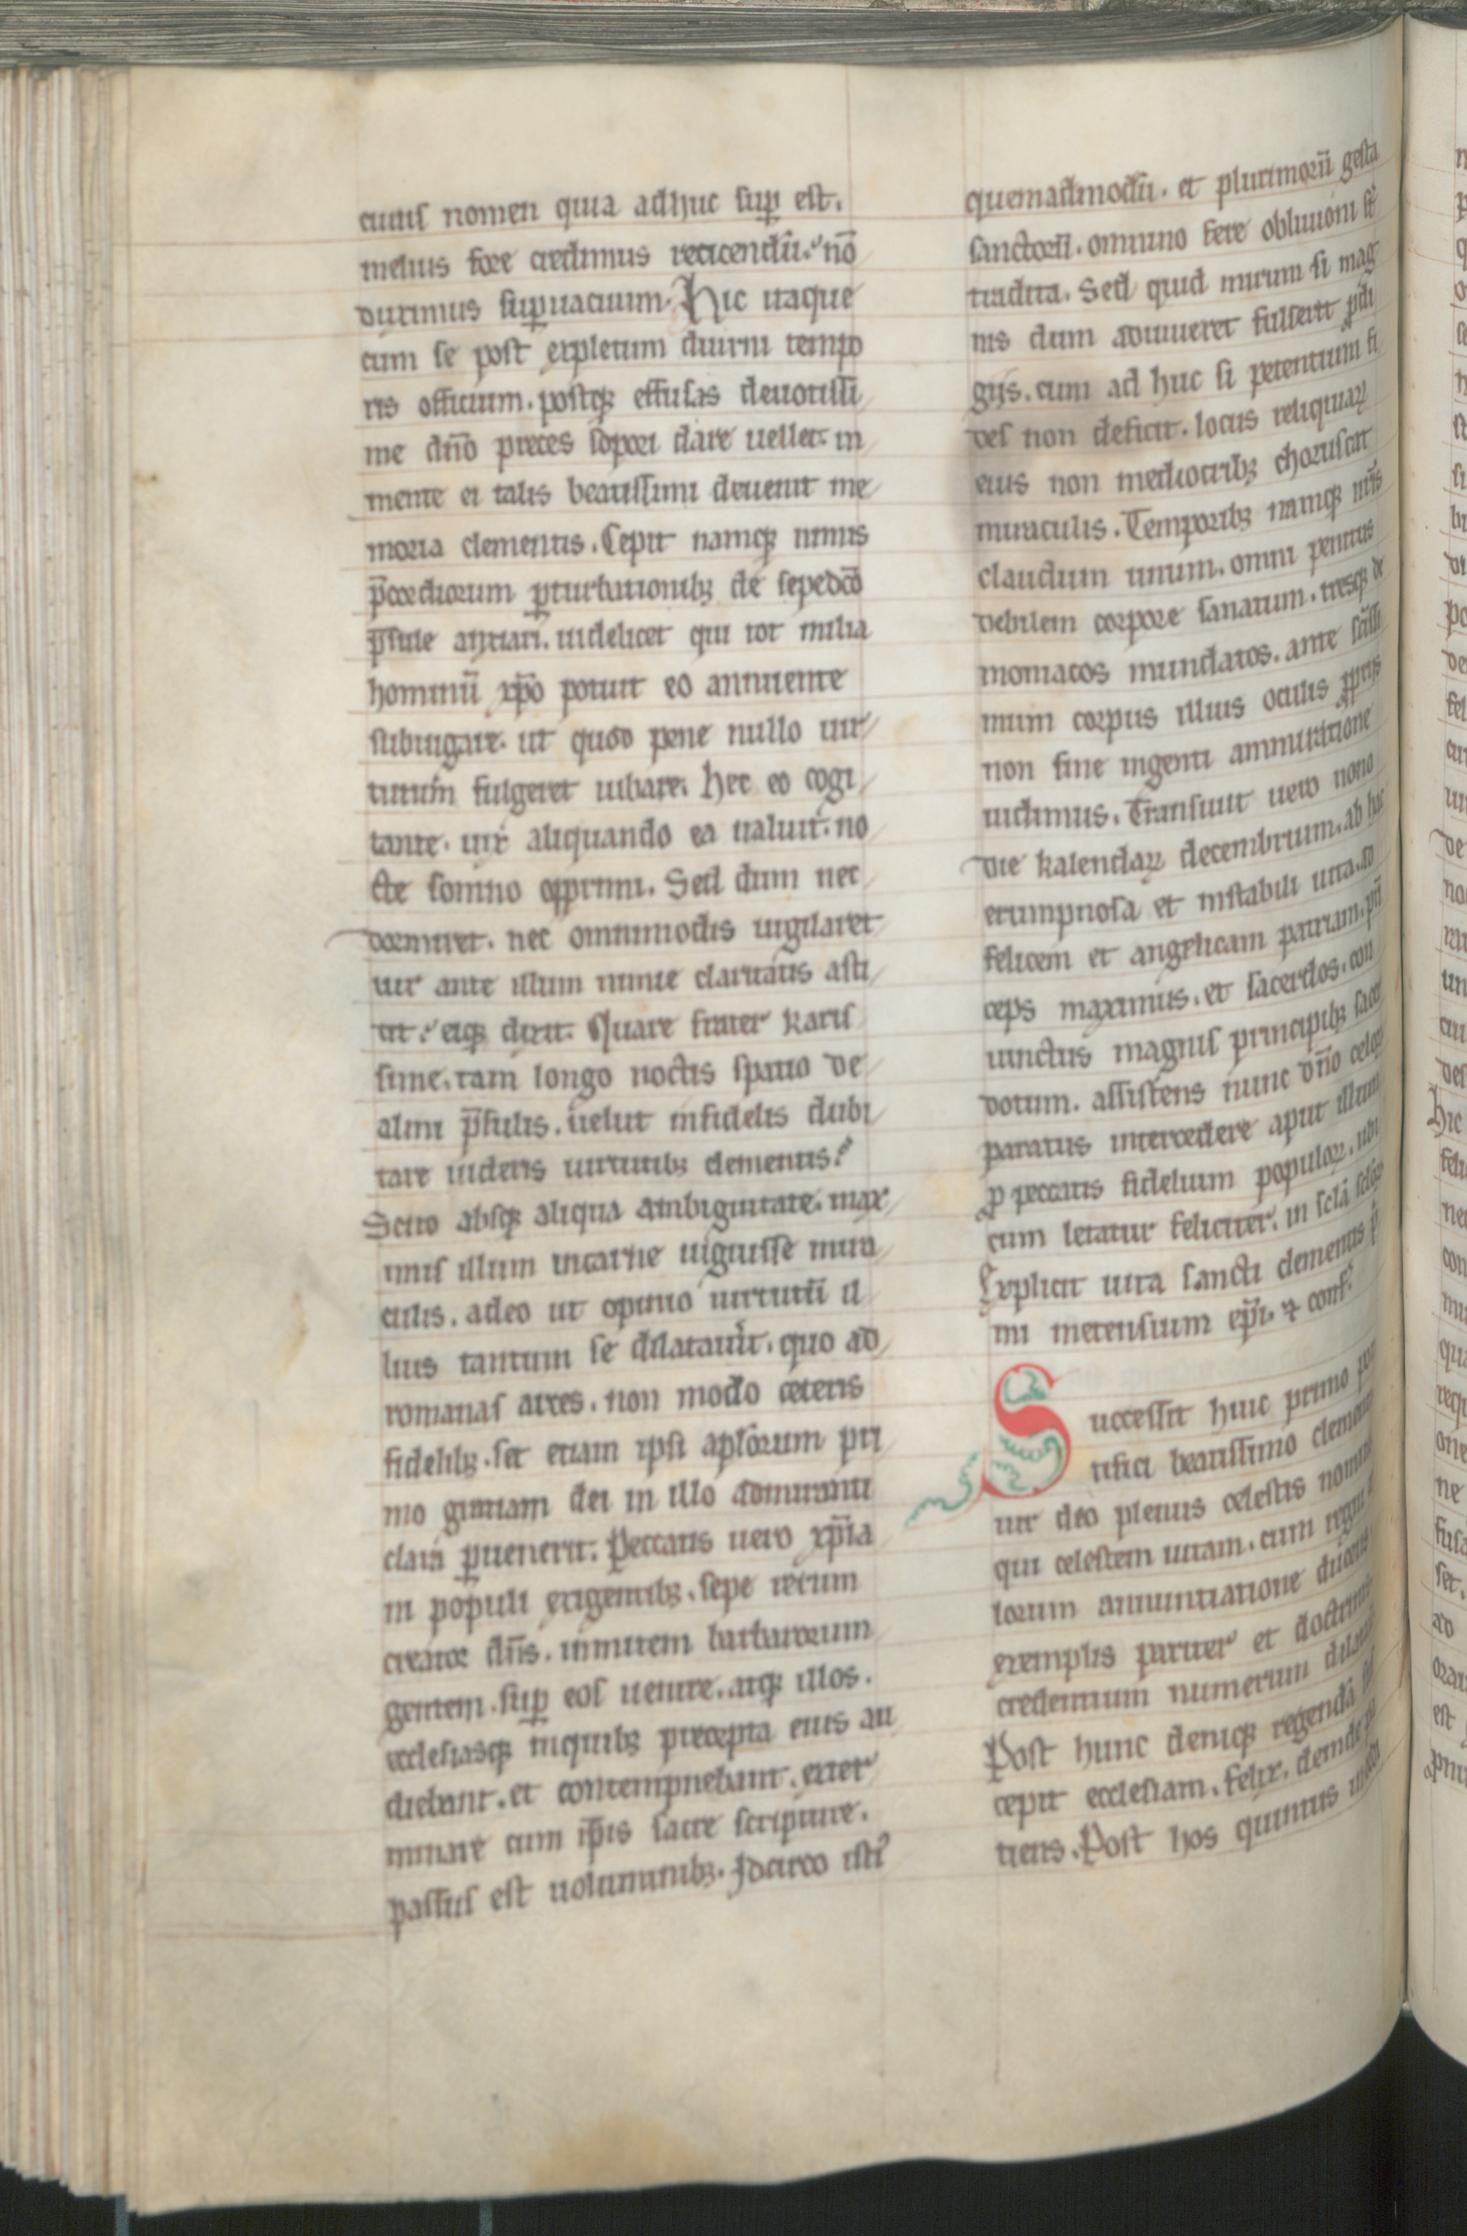 cuius nomen quia adhuc sup̲ est.
melius fore credimus reticendũ. nõ
duximus sup̲uacuum. Hic itaque
cum se post expletum diurni tempo
ris officium. postq; effusas deuotissi
me dño preces sopori dare uellet. in
mente ei talis beatissimi deuenit me
moria clementis. Cepit namq; nimis
p̄cordiorum p̲turbationib; de sepedc̃o
p̄sule anxiari. uidelicet qui tot milia
hominũ xp̃o potuit eo annuente
subiugare. ut quod pene nullo uir
tutum fulgeret iubare. Hec eo cogi
tante. uix aliquando ea ualuit no
cte somno opprimi. Sed dum nec
dormiret. nec omnimodis uigilaret
uir ante illum mire claritatis asti
tit. eiq; dixit. Quare frater karis
sime. tam longo noctis spatio de
almi p̄sulis. uelut infidelis dubi
tare uideris uirtutib; clementis.
Scito absq; aliqua ambiguitate. max
imis illum in carne uiguisse mira
culis. adeo ut opinio uirtutũ il
lius tantum se dilatauit. quo ad
romanas arces. non modo ceteris
fidelib; set etiam ipsi aplõrum pri
mo gratiam dei in illo admiranti
clam p̲uenerit. Peccatis uero xp̃ia
ni populi exigentib; sepe rerum
creator dñs. inmitem barbarorum
gentem. sup̲ eos uenire. atq; illos.
ecclesiasq; in quib; precepta eius au
diebant. et contempnebant. exter
minare cum ip̃is sacre scripture.
passus est uoluminib;. Idcirco isti'
quemadmodũ. et plurimorũ gesta
sanctorũ. omnino fere obliuioni st̃
tradita. Sed quid mirum si mag
nis dum aduiueret fulserit p̲di
giis. cum ad huc si petentium fi
des non deficit. locus reliquiaꝝ
eius non mediocrib; choruscat
miraculis. Temporib; namq; nr̃is
claudum unum. omni penitus
debilem corpore sanatum. tresq; de
moniacos mundatos. ante scĩssi
mum corpus illius oculis p̲priis
non sine ingenti ammiratione
uidimus. Transiuit uero nono
die kalendaꝝ decembrium. ab hac
erumpnosa et instabili uita. ad
felicem et angelicam patriam. prĩ
ceps maximus. et sacerdos. con
iunctus magnis principib; sacer
dotum. assistens nunc dño celoꝝ
paratus intercedere aput illum
p̲ peccatis fidelium populoꝝ. ubi
cum letatur feliciter. in scl̃a scl̃oꝝ
Explicit uita sancti clementis p'
mi metensium ep̃i. ⁊ conf'.
Successit huic primo pon
tifici beatissimo clementi
uir deo plenus celestis nomine
qui celestem uitam. cum regni ce
lorum annuntiatione ducens
exemplis pariter et doctrinis
credentium numerum dilatauit
Post hunc deniq; regendã sus
cepit ecclesiam. felix. deinde pa
tiens. Post hos quintus